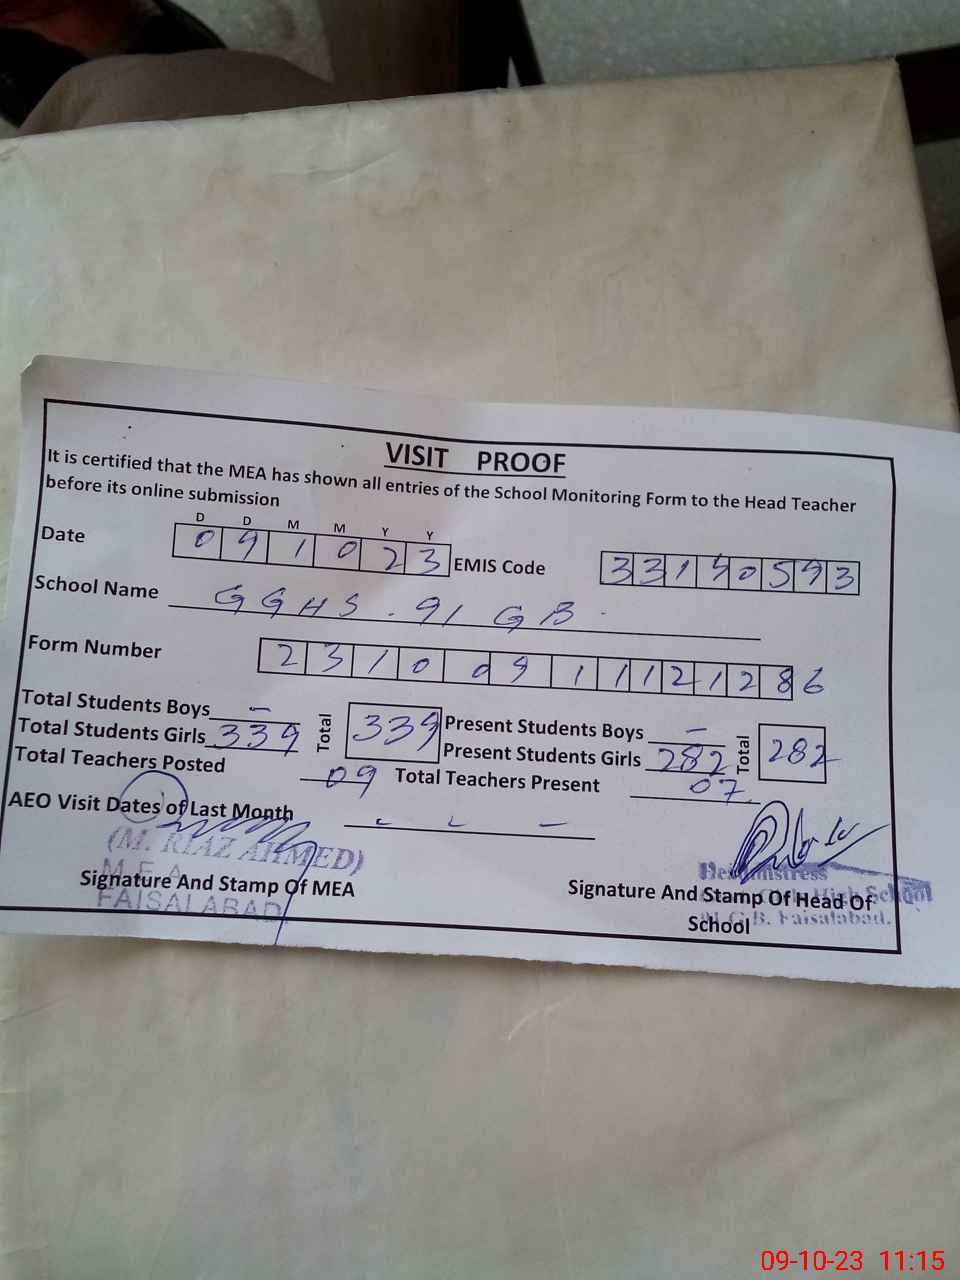 VISIT PROOF
It is certified that the MEA has shown all entries of the School Monitoring Form to the Head Teacher
before its online submission
D D M M Y Y
Date 0 9 1 0 2 3 EMIS Code 3 3 1 9 0 5 9 3
School Name GGHS . 91 GB
Form Number 2 3 1 0 0 9 1 1 1 2 1 2 8 6
Total Students Boys - Total 339 Present Students Boys - Total 282
Total Students Girls 339 Present Students Girls 282
Total Teachers Posted 09 Total Teachers Present 07
AEO Visit Dates of Last Month - - -
(M. RIAZ AHMED)
M.E.A
FAISALABAD
Signature And Stamp Of MEA
Headmistress
Girls High School
G.B. Faisalabad.
Signature And Stamp Of Head Of
School
09-10-23 11:15